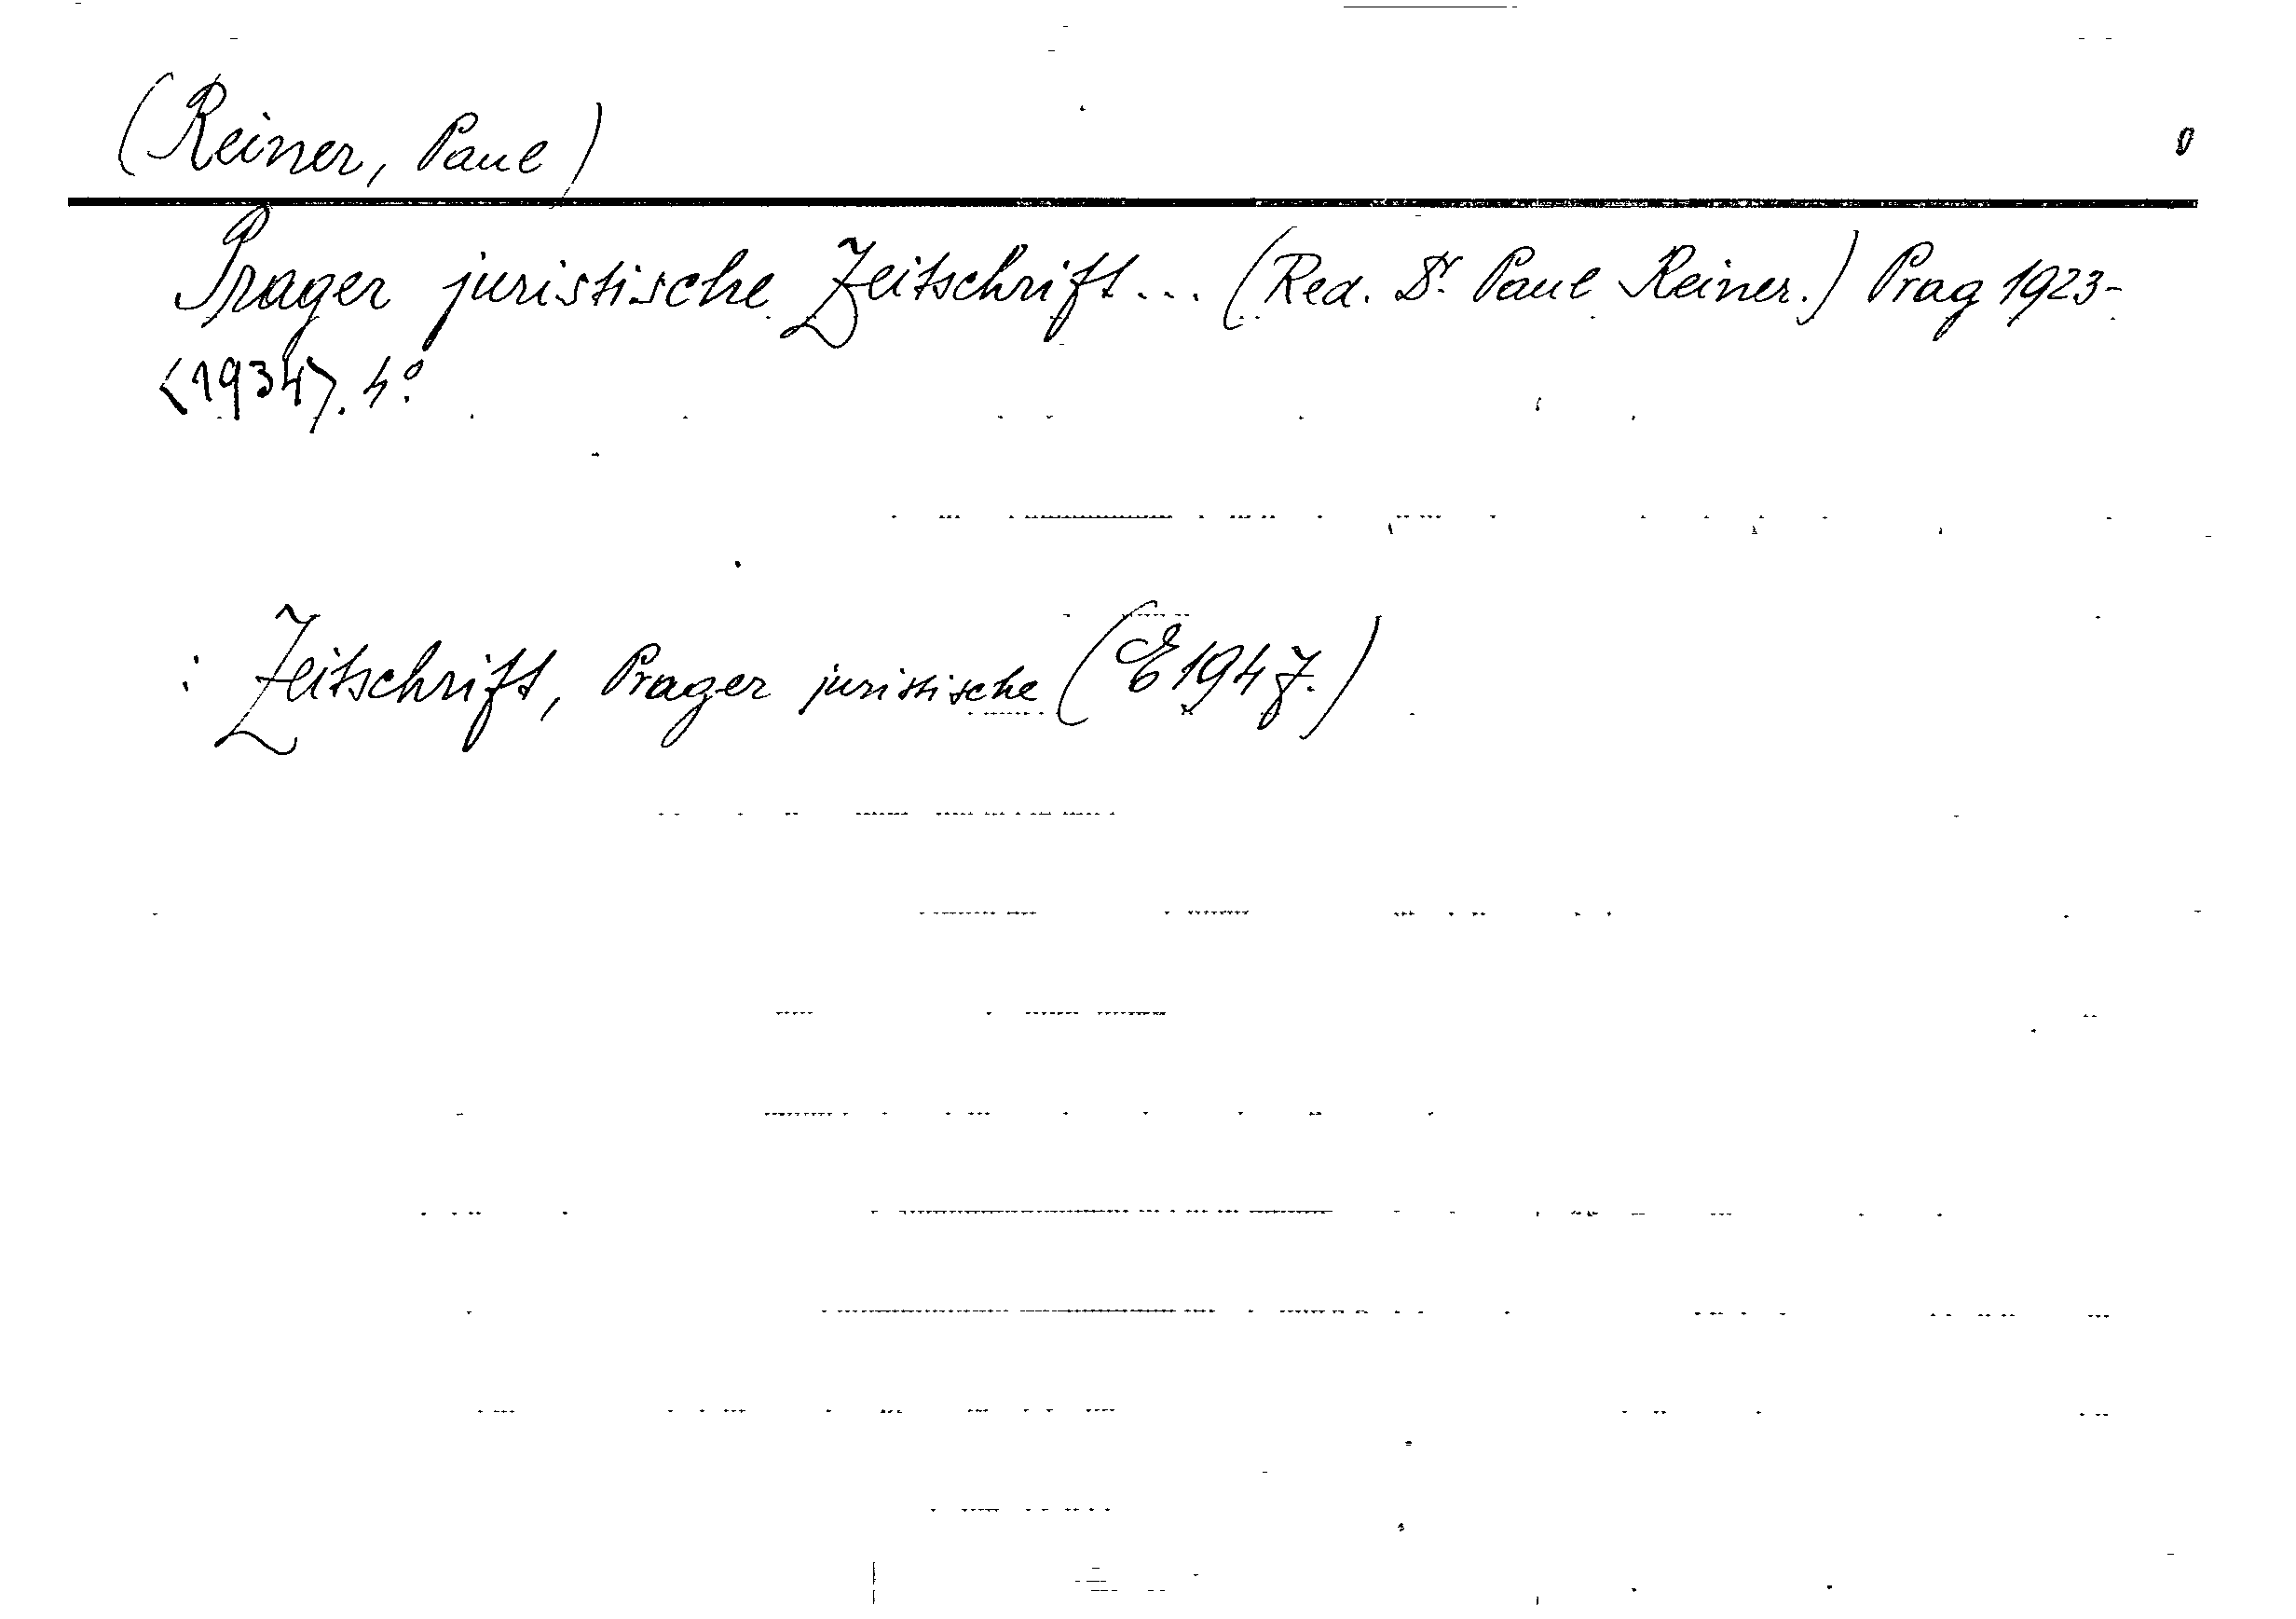 (Reiner, Paul) 0
Prager juristische Zeitschrift... (Red. Dr. Paul Reiner.) Prag 1923-
<1934>. 4°.
: Zeitschrift, Prager juristische (E 1947.)